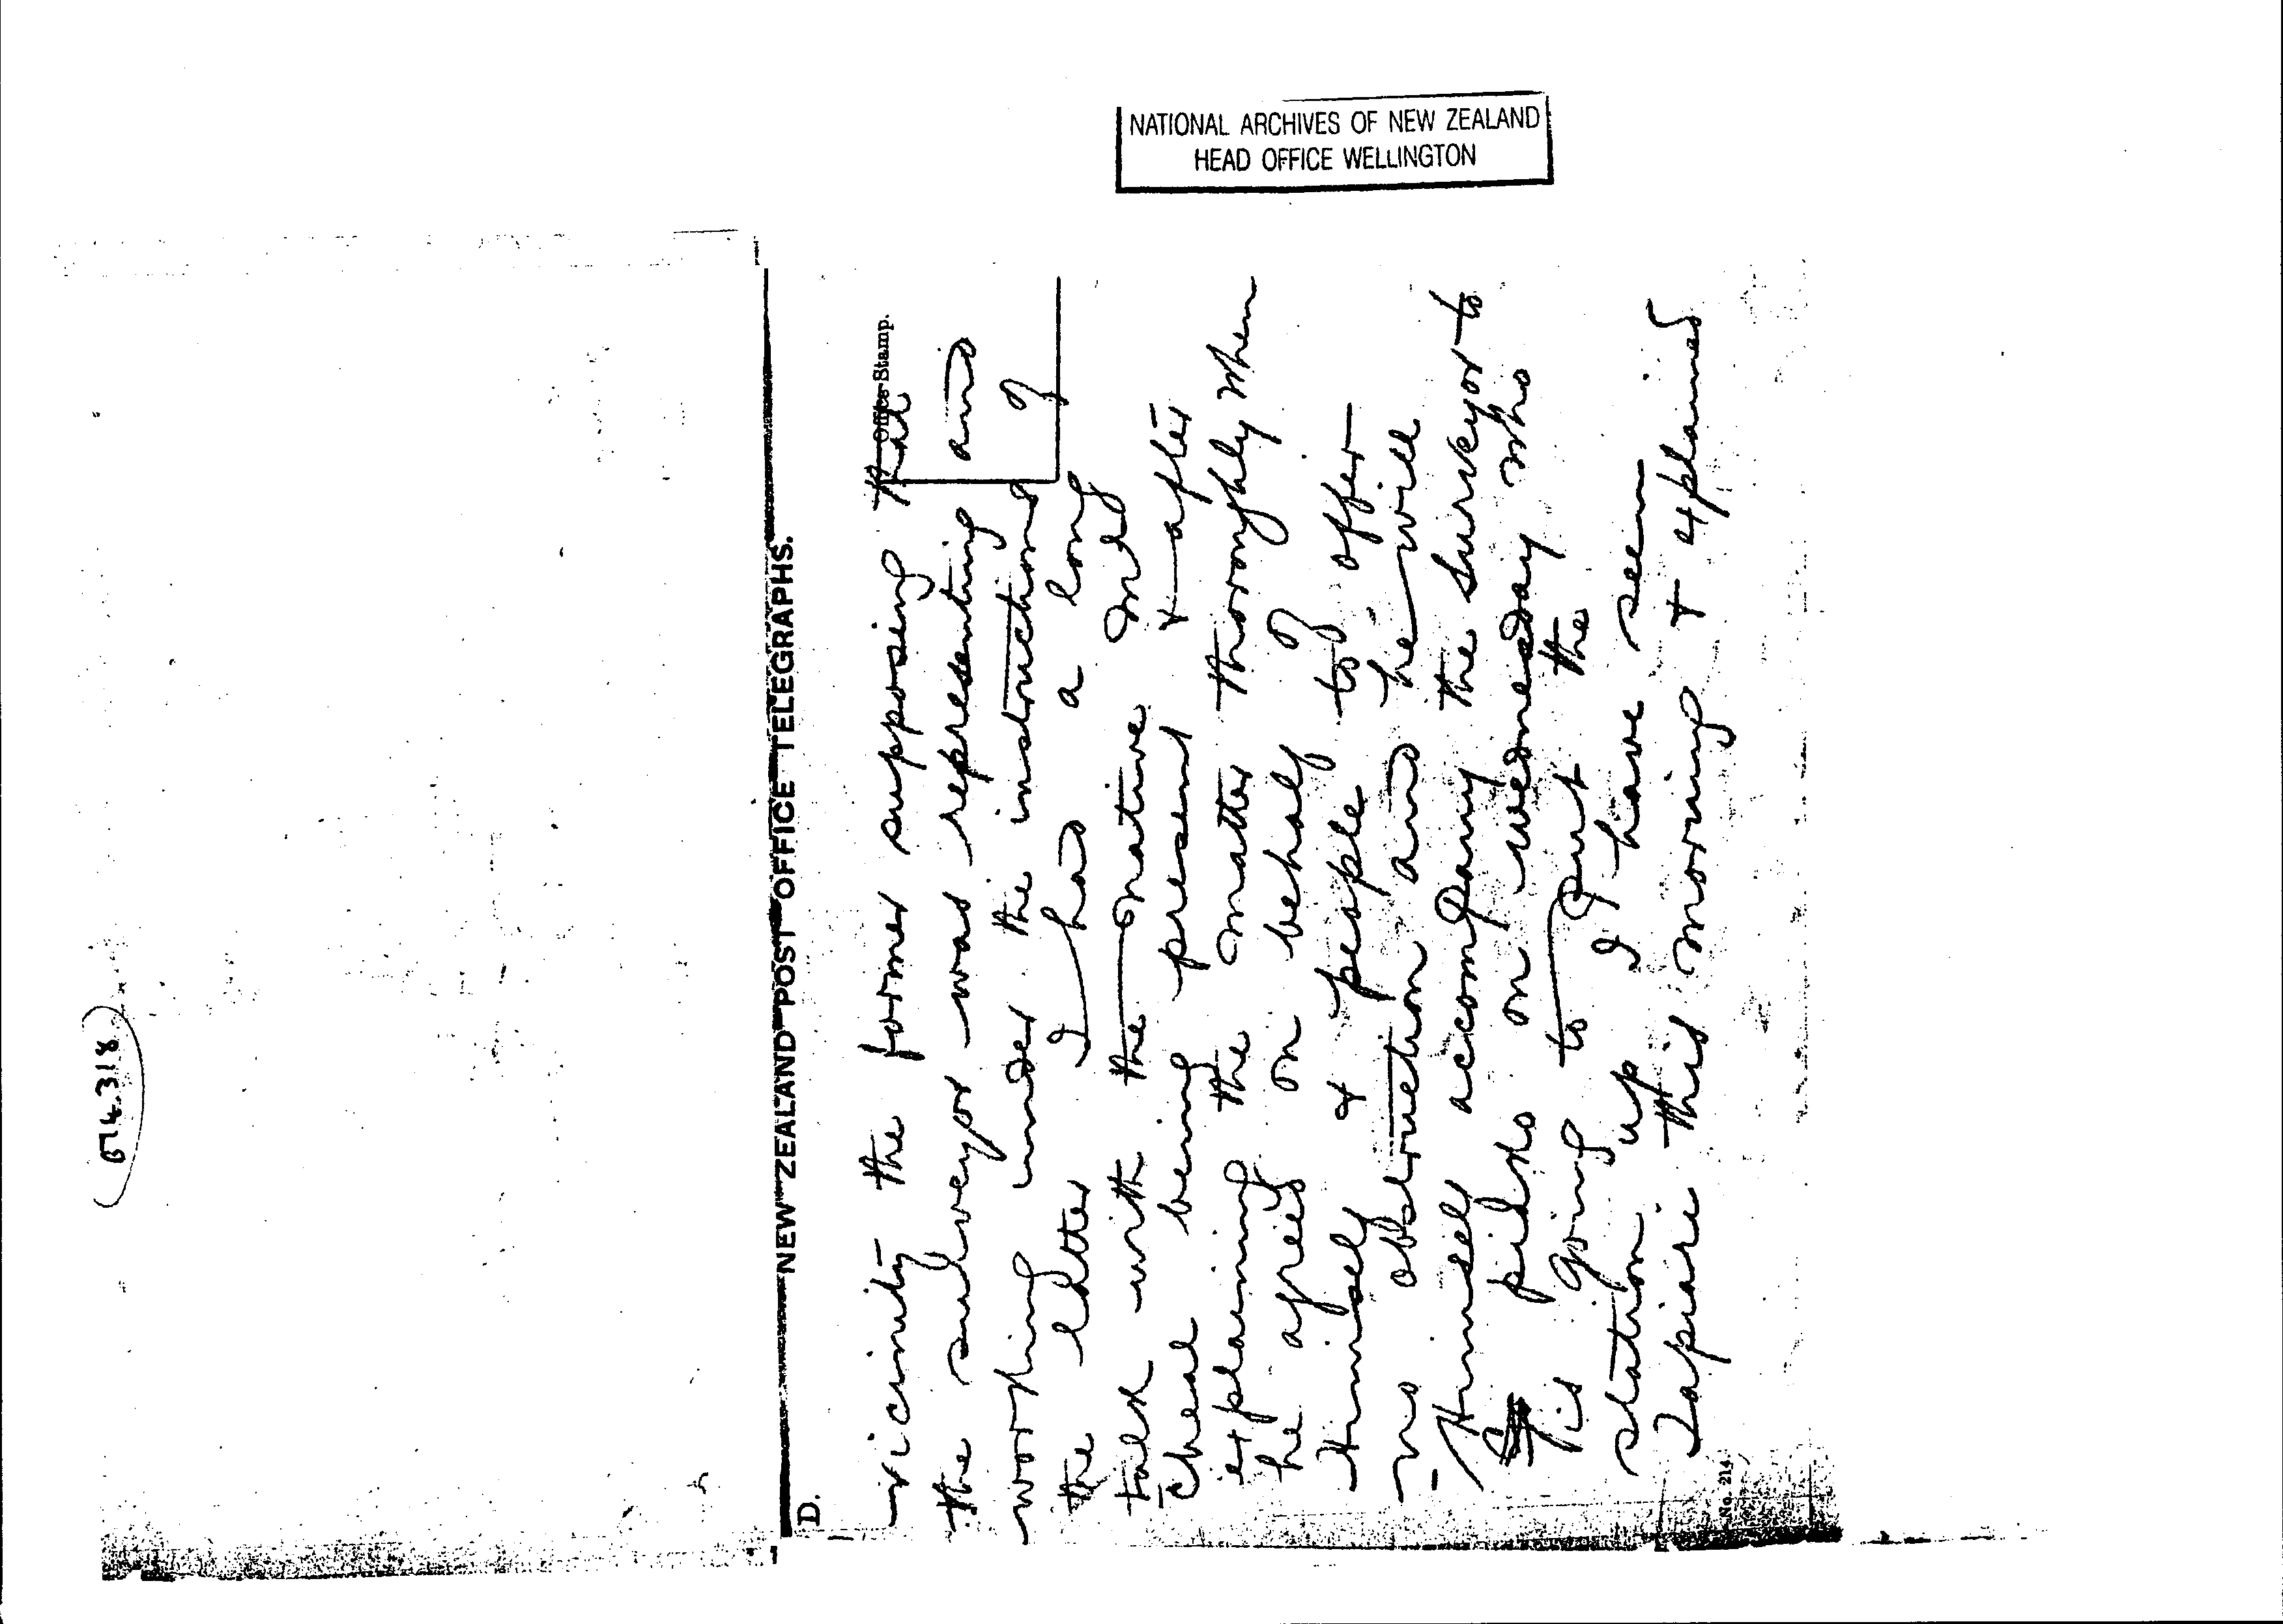 NATIONAL ARCHIVES OF NEW ZEALAND
HEAD OFFICE WELLINGTON
874.318
NEW ZEALAND POST OFFICE TELEGRAPHS.
D.
Office Stamp.
vicinity the former supposing that
the surveyor was representing and
working under the instructions of
the latter I had a long
talk with the native Mr
Cheal being present & after
explaining the matter thoroughly when
he agreed on behalf of
himself & people to offer
no obstruction and he will
himself accompany the surveyor to
on wednesday who
is going to put the
station up I have seen
Tapiri this morning & explained
No. 214